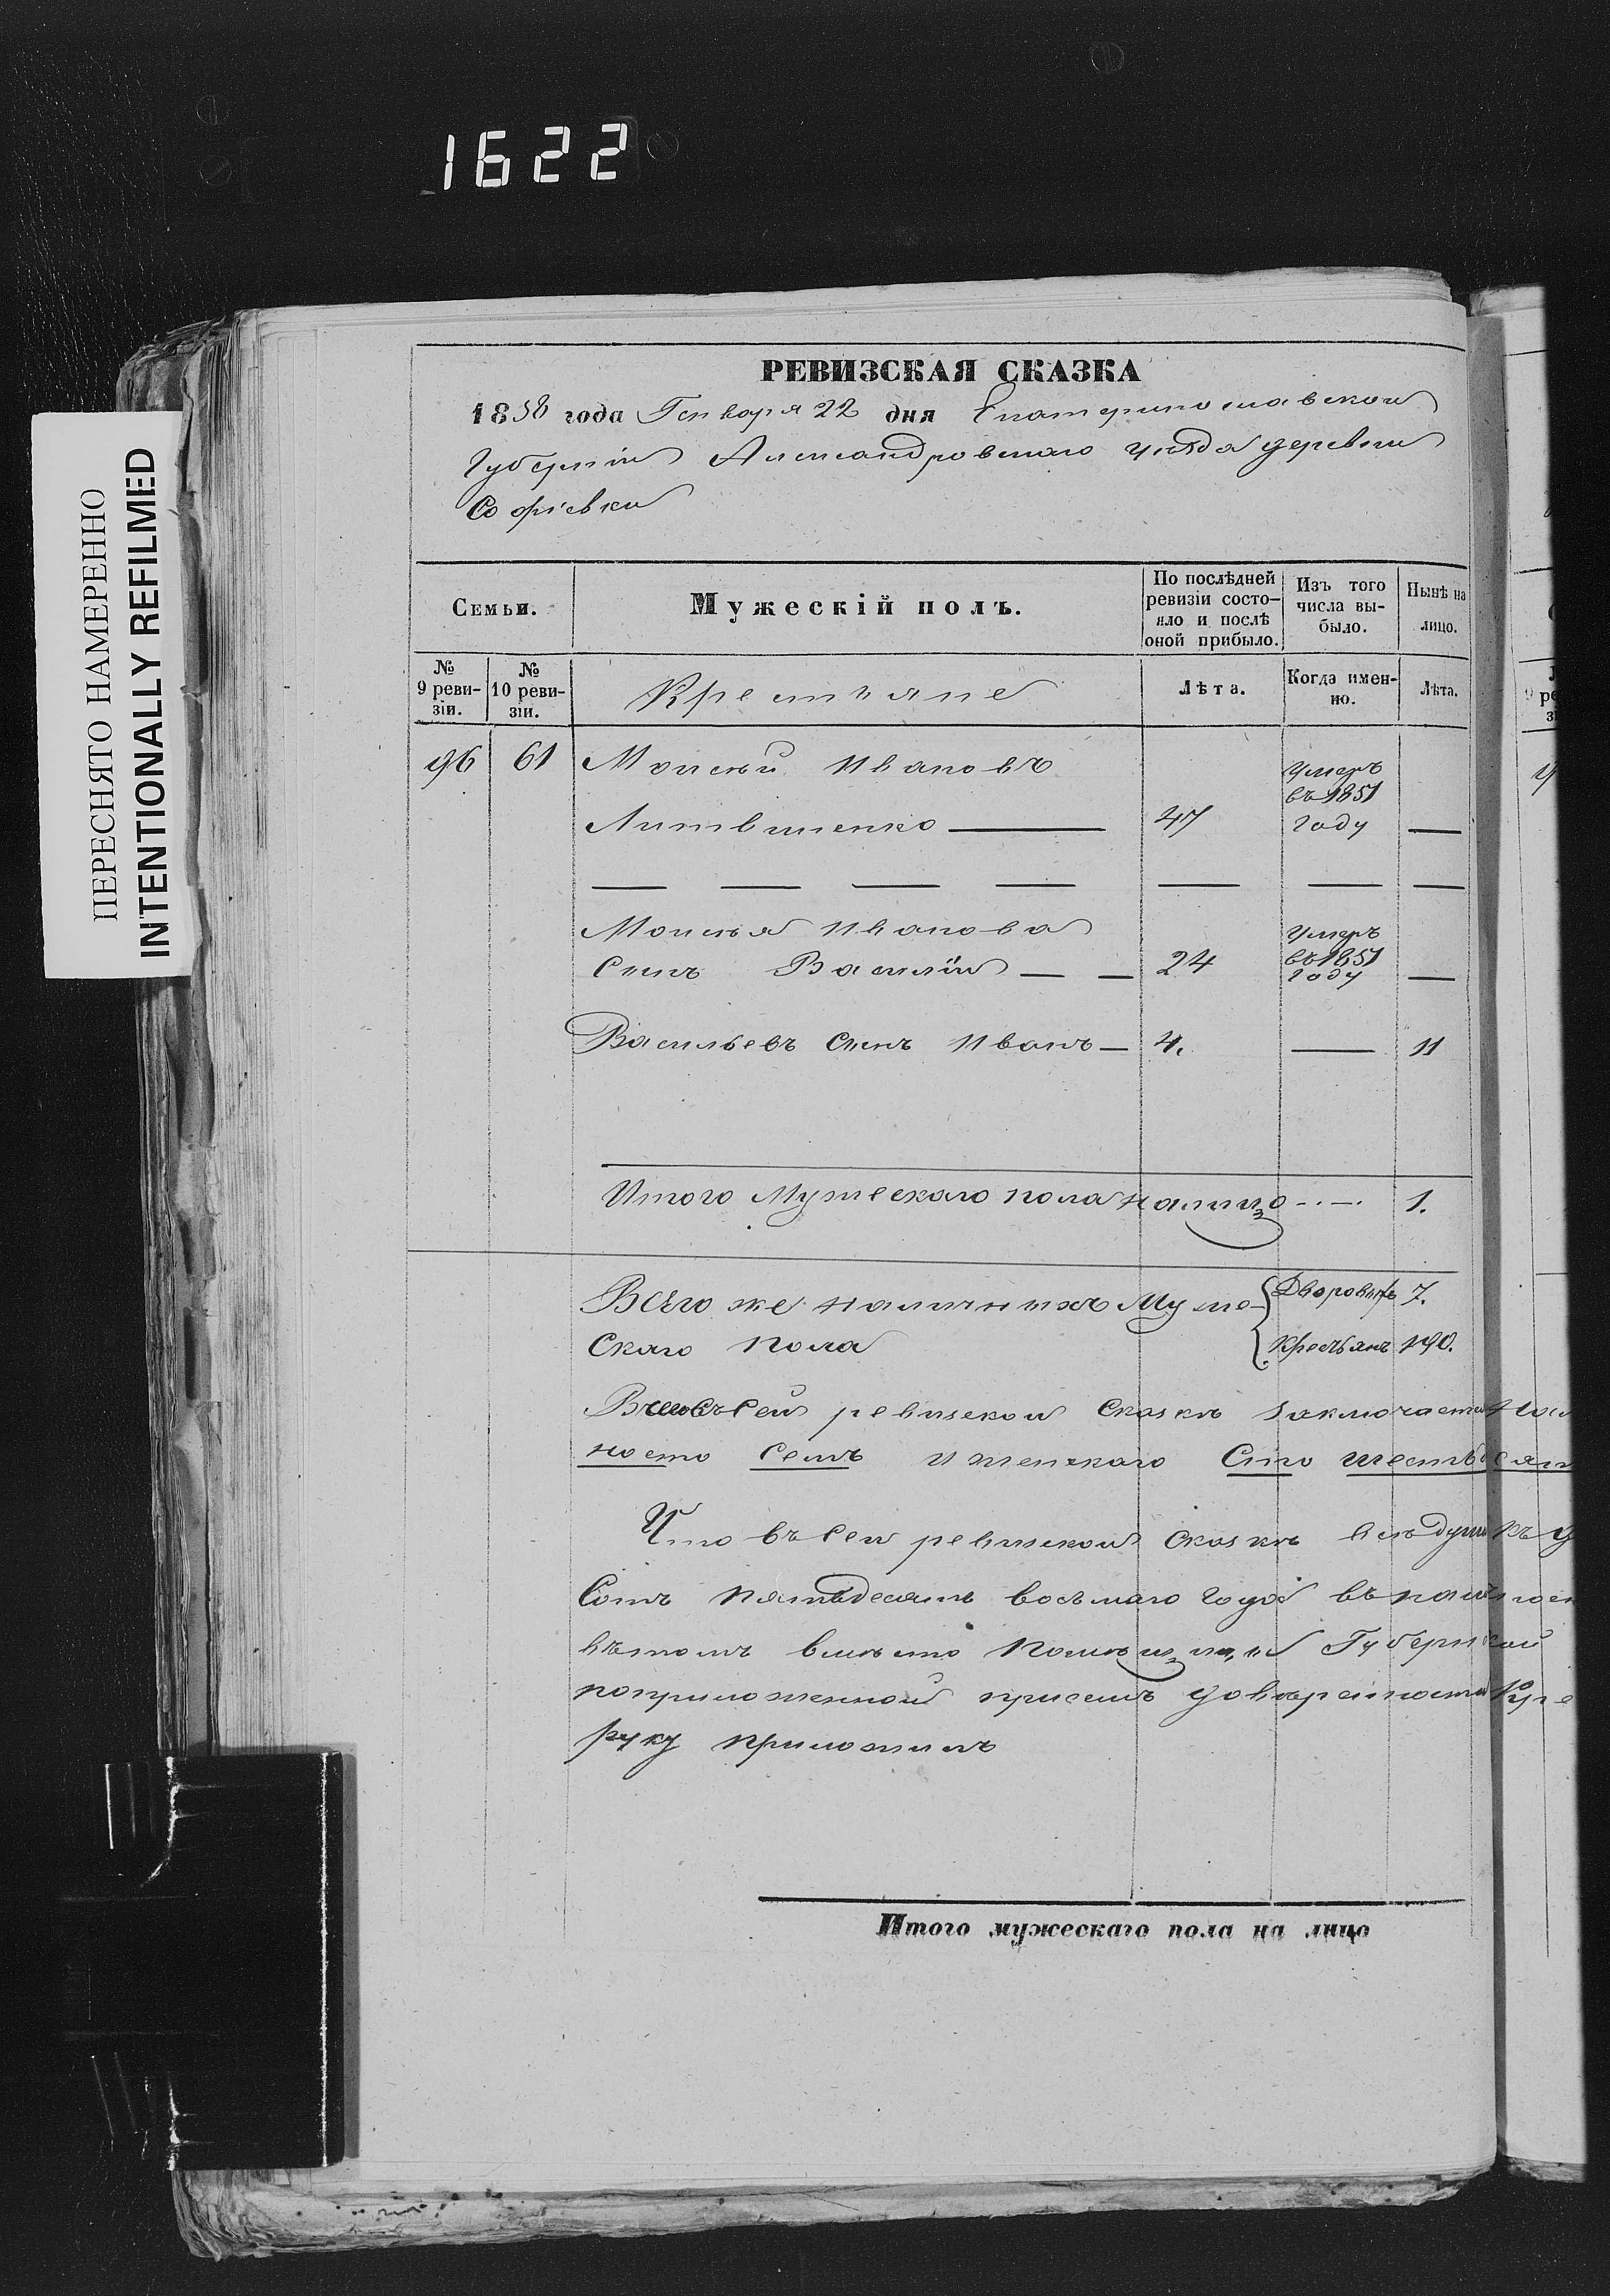 1622
ПЕРЕСНЯТО НАМЕРЕННО
INTENTIONALLY REFILMED
РЕВИЗСКАЯ СКАЗКА
1858 года Генваря 22 дня Екатеринославской
Губерніи Александровскаго уѣзда деревни
Софіевки
Семьи.
Мужескій полъ.
По послѣдней
ревизіи состо-
яло и послѣ
оной прибыло.
Изъ того
числа вы-
было.
Нынѣ на
лицо.
№
9 реви-
зіи.
№
10 реви-
зіи.
Крестьяне
Лѣта.
Когда имен-
но.
Лѣта.
96 61 Моисѣй Ивановъ
Литвиненко 47
Умеръ
въ 1851
году
Моисѣя Иванова
сынъ Василій 24
Умеръ
въ 1851
году
Васильевъ сынъ Иванъ 4. 11
Итого Мужескаго пола налицо 1.
Всего же наличныхъ Муже-
скаго пола
Дворовыхъ 7.
Крестьянъ 190.
сей ревизской сказкѣ заключается
носто семь и женскаго Сто шестьдесят
Что въ сей ревизской сказкѣ всѣ души къ
Сотъ пятьдесятъ восьмаго года въ
вѣтомъ вмѣсто Губернской
поприложенной присемъ довѣренности
руку приложилъ
Итого мужескаго пола на лицо